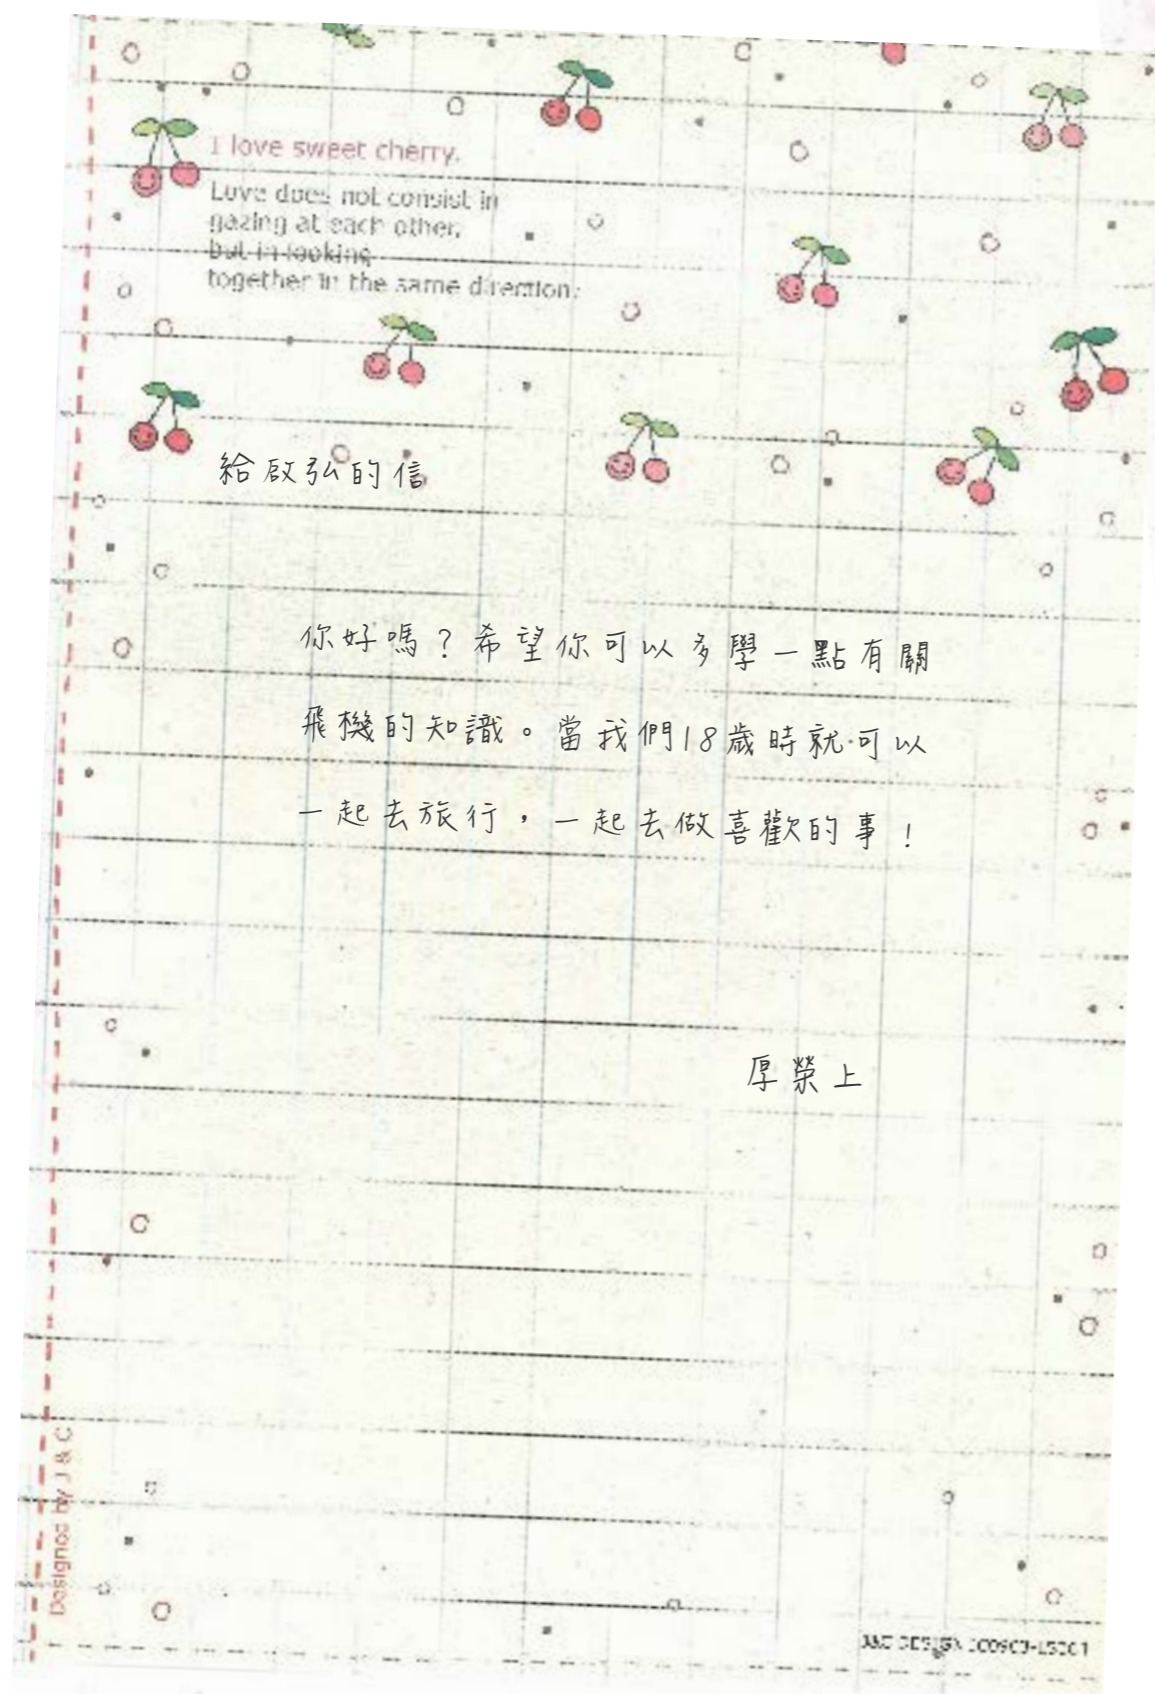 I love sweet cherry.
Love does not consist in
gazing at each other,
but in looking
together in the same direction.
給啟弘的信
你好嗎？希望你可以多學一點有關
飛機的知識。當我們18歲時就可以
一起去旅行，一起去做喜歡的事！
厚榮上
Designed by J & C
J&C DESIGN